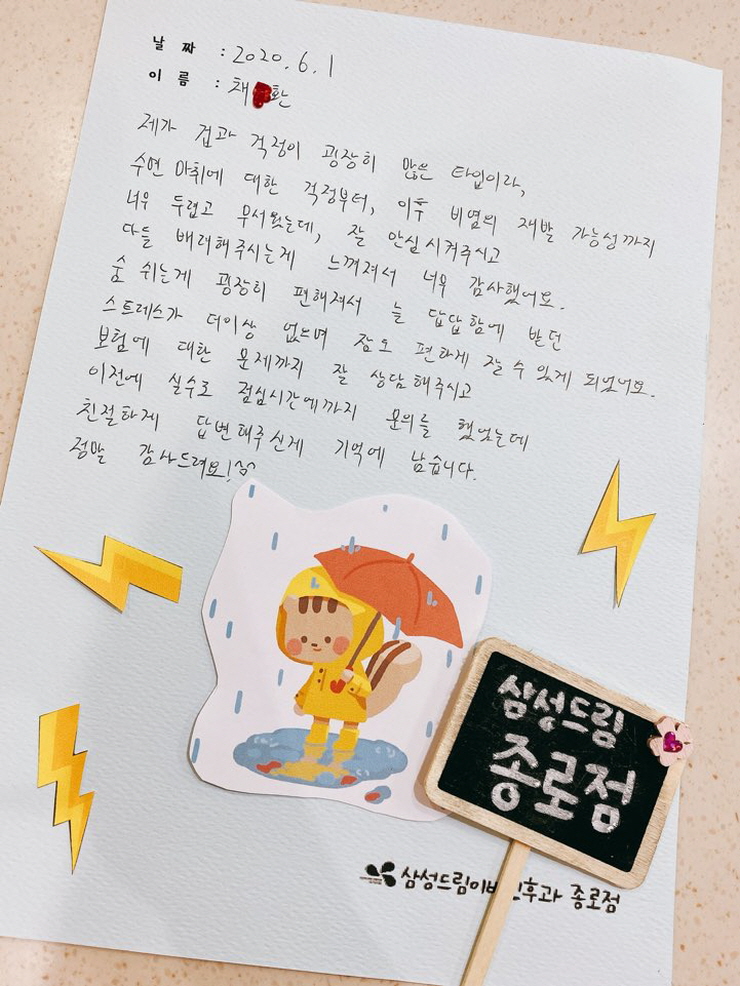 날 짜 : 2020. 6. 1
이 름 : 채 환
제가 겁과 걱정이 굉장히 많은 타입이라,
수면 마취에 대한 걱정부터, 이후 비염의 재발 가능성까지
너무 두렵고 무서웠는데, 잘 안심시켜주시고
다들 배려해주시는게 느껴져서 너무 감사했어요.
숨 쉬는게 굉장히 편해져서 늘 답답함에 받던
스트레스가 더이상 없으며 잠도 편하게 잘 수 있게 되었어요.
보험에 대한 문제까지 잘 상담해주시고
이전에 실수로 점심시간에까지 문의를 했었는데
친절하게 답변해주신게 기억에 남습니다.
정말 감사드려요!^^
삼성드림
종로점
삼성드림이비 후과 종로점